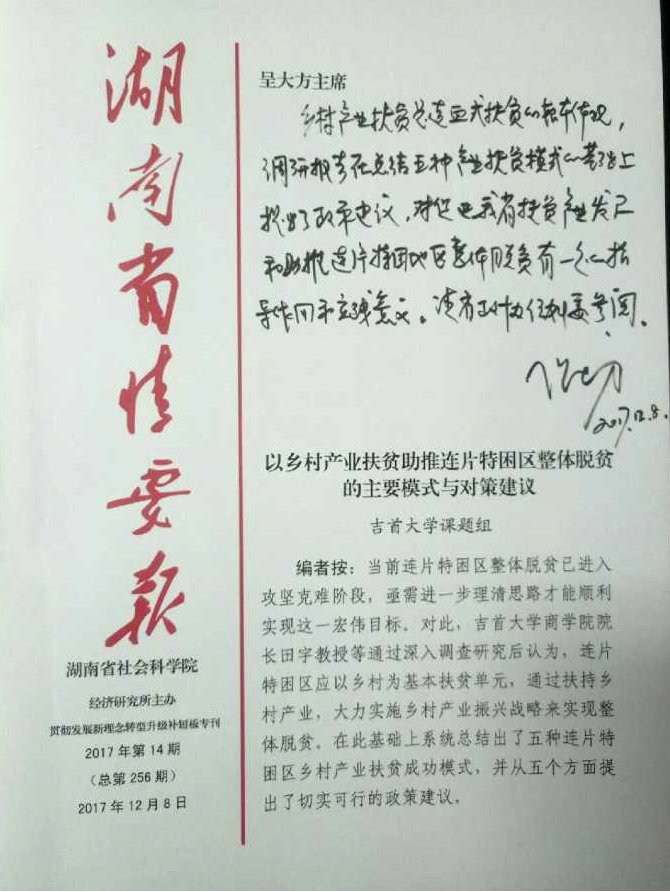 湖南省情要报
湖南省社会科学院
经济研究所主办
贯彻发展新理念转型升级补短板专刊
2017年第14期
（总第256期）
2017年12月8日
呈大方主席
乡村产业扶贫是造血式扶贫的根本体现，
调研报告在总结五种产业扶贫模式的基础上
提出了政策建议，对促进我省扶贫产业发展
和助推连片特困地区整体脱贫有一定的指
导作用和实践意义。请省政协领导参阅。
2017.12.8.
以乡村产业扶贫助推连片特困区整体脱贫
的主要模式与对策建议
吉首大学课题组
编者按：当前连片特困区整体脱贫已进入
攻坚克难阶段，亟需进一步理清思路才能顺利
实现这一宏伟目标。对此，吉首大学商学院院
长田宇教授等通过深入调查研究后认为，连片
特困区应以乡村为基本扶贫单元，通过扶持乡
村产业，大力实施乡村产业振兴战略来实现整
体脱贫。在此基础上系统总结出了五种连片特
困区乡村产业扶贫成功模式，并从五个方面提
出了切实可行的政策建议。